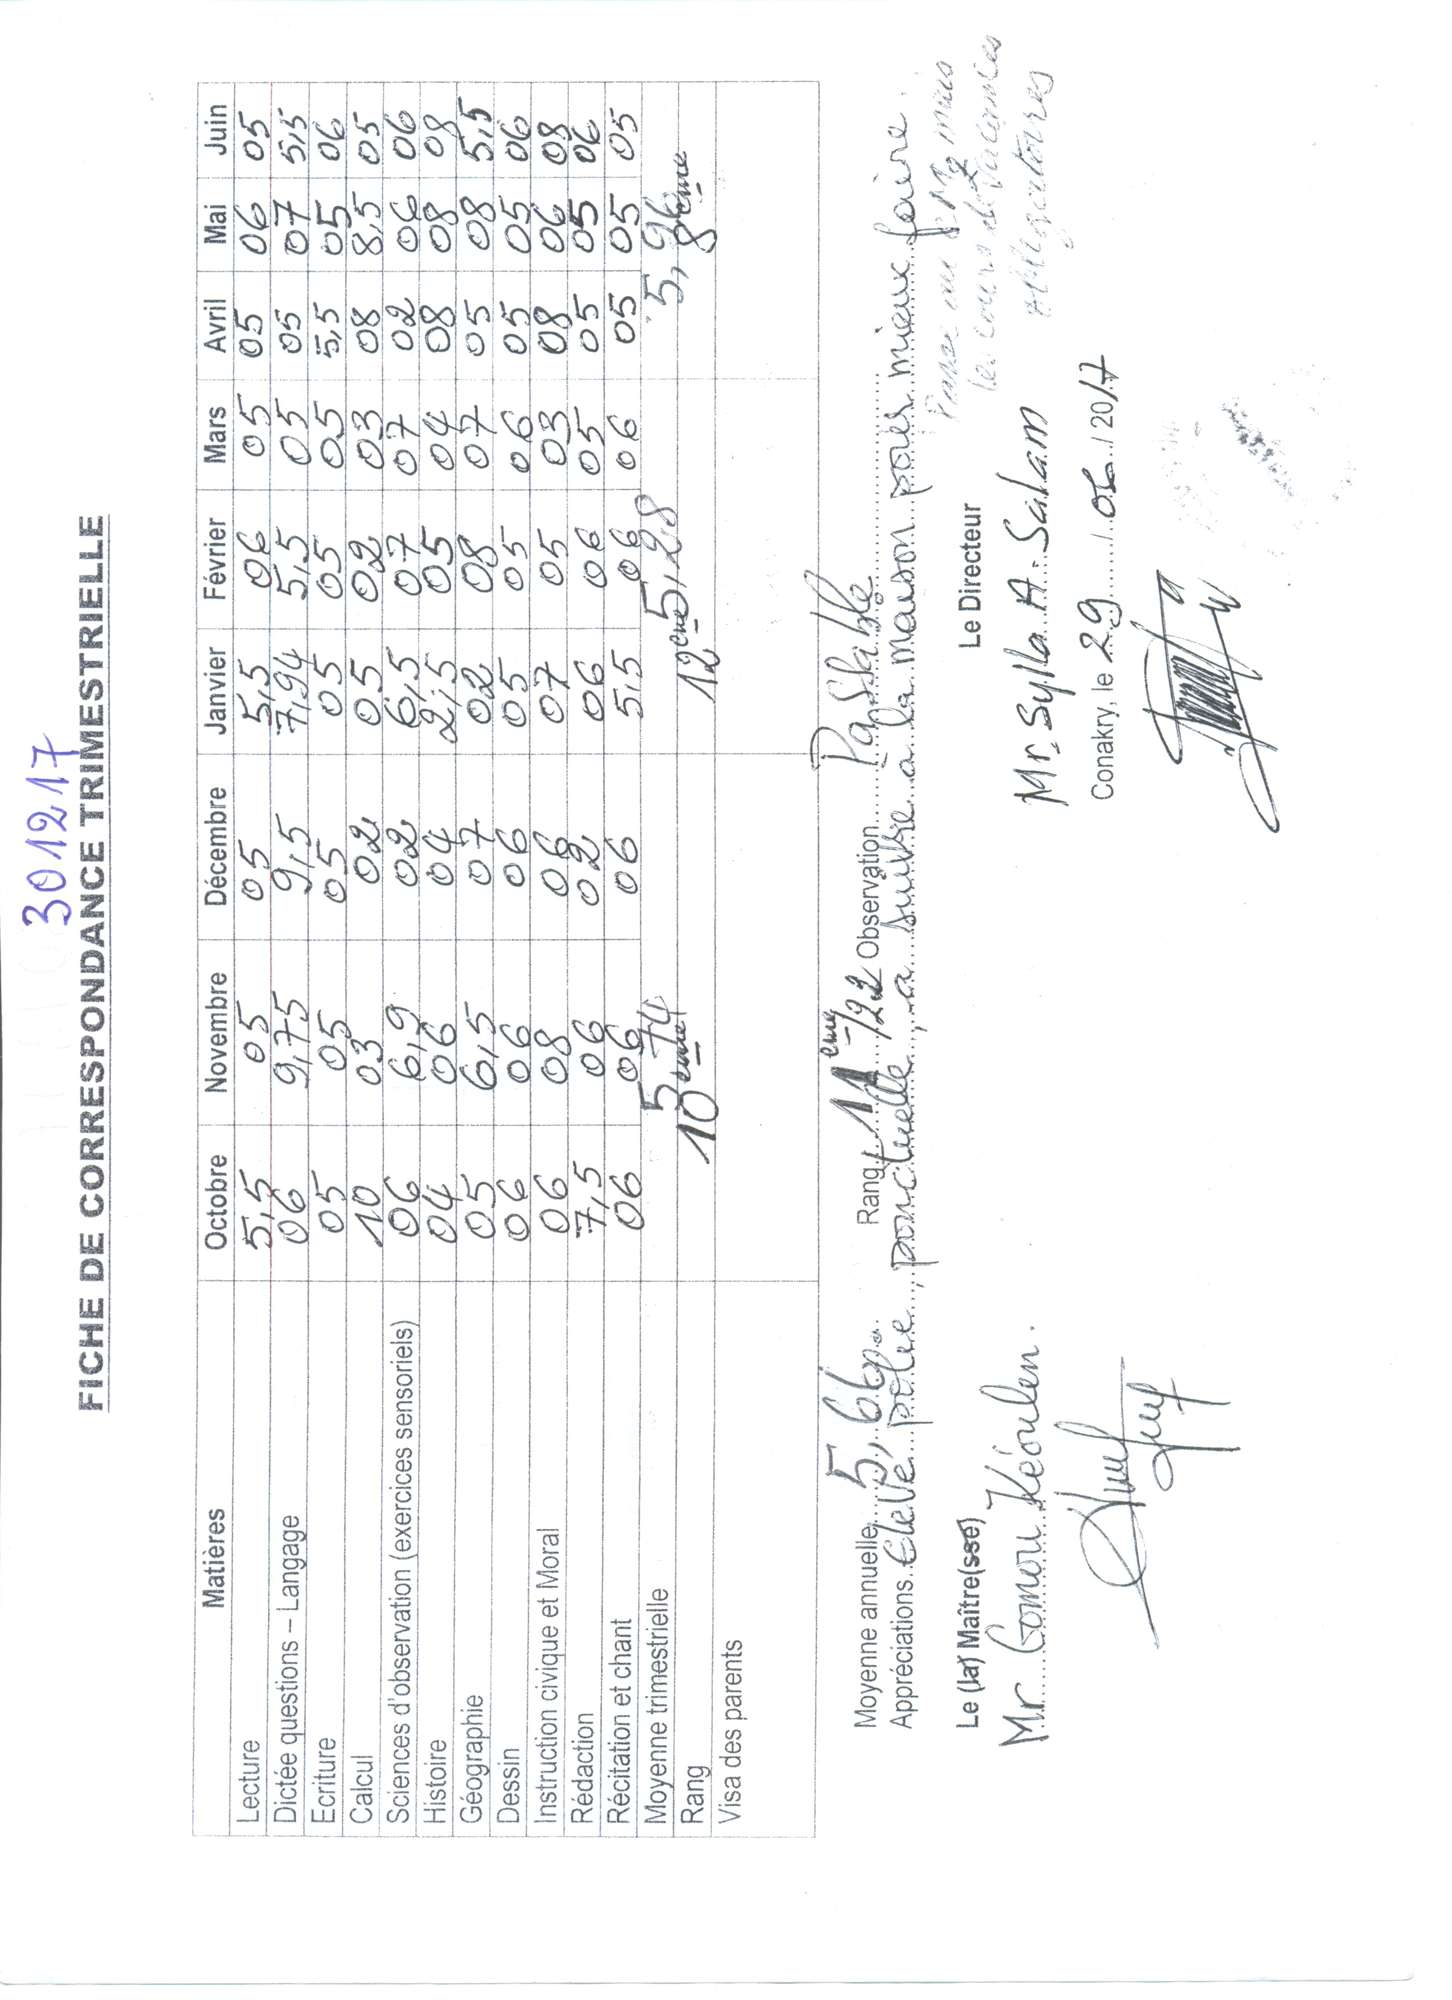 301217
FICHE DE CORRESPONDANCE TRIMESTRIELLE
Matières Octobre Novembre Décembre Janvier Février Mars Avril Mai Juin
Lecture 5,5 05 05 5,5 06 05 05 06 05
Dictée questions – Langage 06 9,75 9,5 7,94 5,5 05 05 07 5,5
Ecriture 05 05 05 05 05 05 5,5 05 06
Calcul 10 03 02 05 02 03 08 8,5 05
Sciences d'observation (exercices sensoriels) 06 6,9 02 6,5 07 07 02 06 06
Histoire 04 06 04 2,5 05 04 08 08 08
Géographie 05 6,5 07 02 08 07 05 08 5,5
Dessin 06 06 06 05 05 06 05 05 06
Instruction civique et Moral 06 08 06 07 05 03 08 06 08
Rédaction 7,5 06 02 06 06 05 05 05 06
Récitation et chant 06 06 06 5,5 06 06 05 05 05
Moyenne trimestrielle 5,74 5,28 5,96
Rang 10eme 12eme 8eme
Visa des parents
Moyenne annuelle 5,66 Rang 11eme/22 Observation Passable
Appréciations Eleve polie, ponctuelle, a suivre a la maison pour mieux faire.
Passe au CM2 mais
les cours de vacances
obligatoires
Le (la) Maître(sse) Le Directeur
Mr Gomou Kéoulen. Mr Sylla A. Salam
Conakry, le 29/06/2017